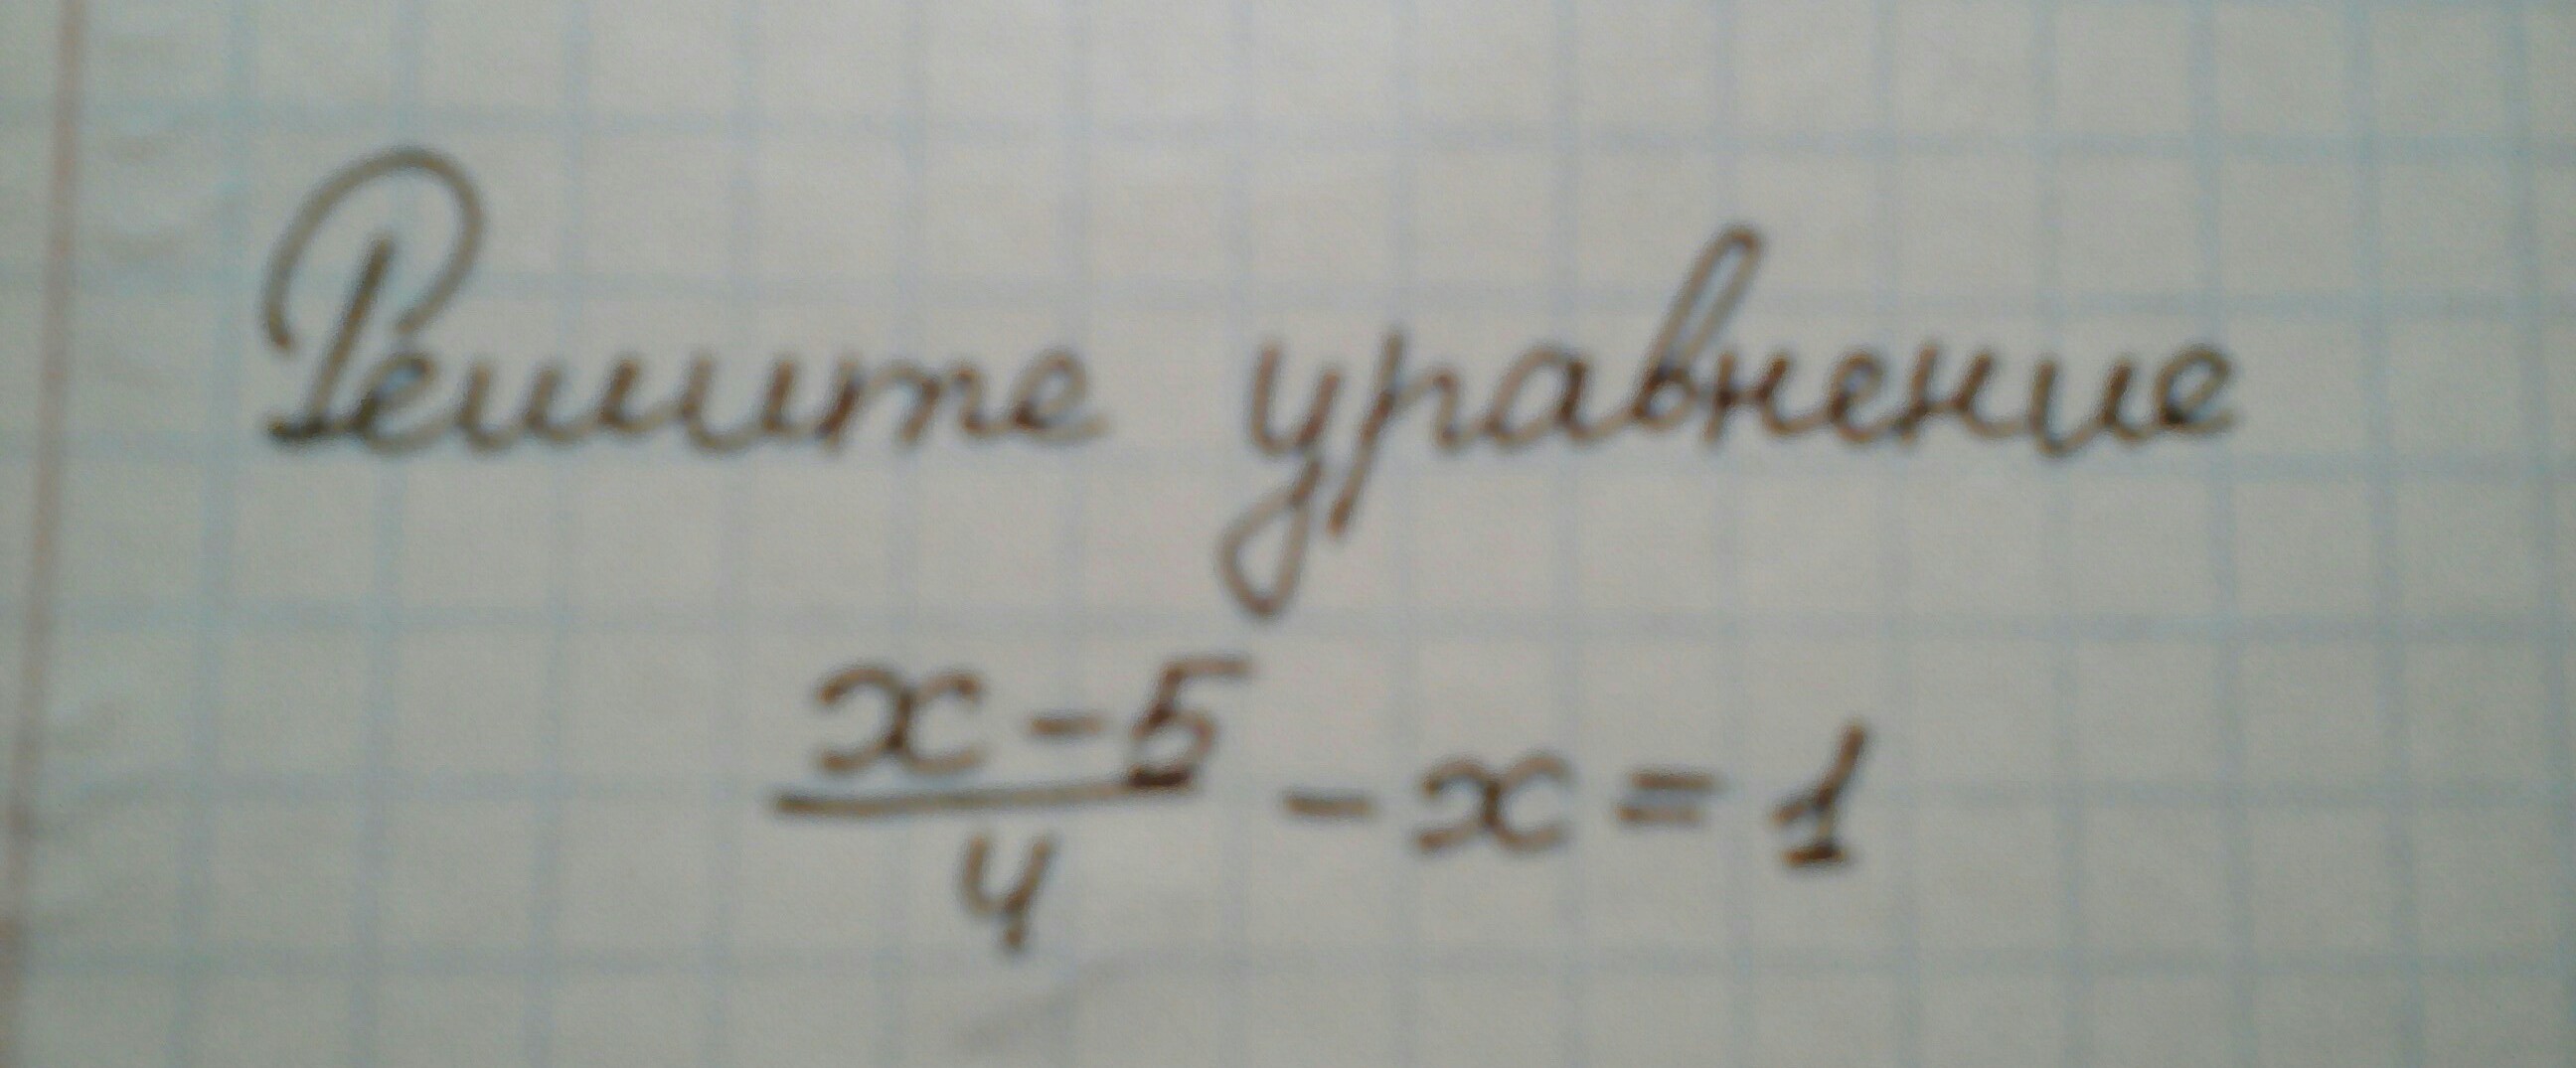 Решите уравнение
x - 5
4
- x = 1